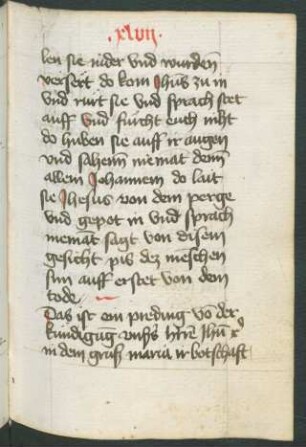 xlvii
len sie nider vnd wurden
versert do kom Jhus zu in
vnd rurt sie vnd sprach stet
auff vnd furcht euch niht
do huben sie auff ir augen
vnd sahenn niemat denn
allein Johannem do lait
sie Jhesus von dem perge
vnd gepot in vnd sprach
nieman sagt von disem
gesicht pis dez menschen
sun auff erstet von dem
tode
Das ist ein preding vo der
kundigung vnsers hrre Jhu
in dem gruß maria ir botschaft